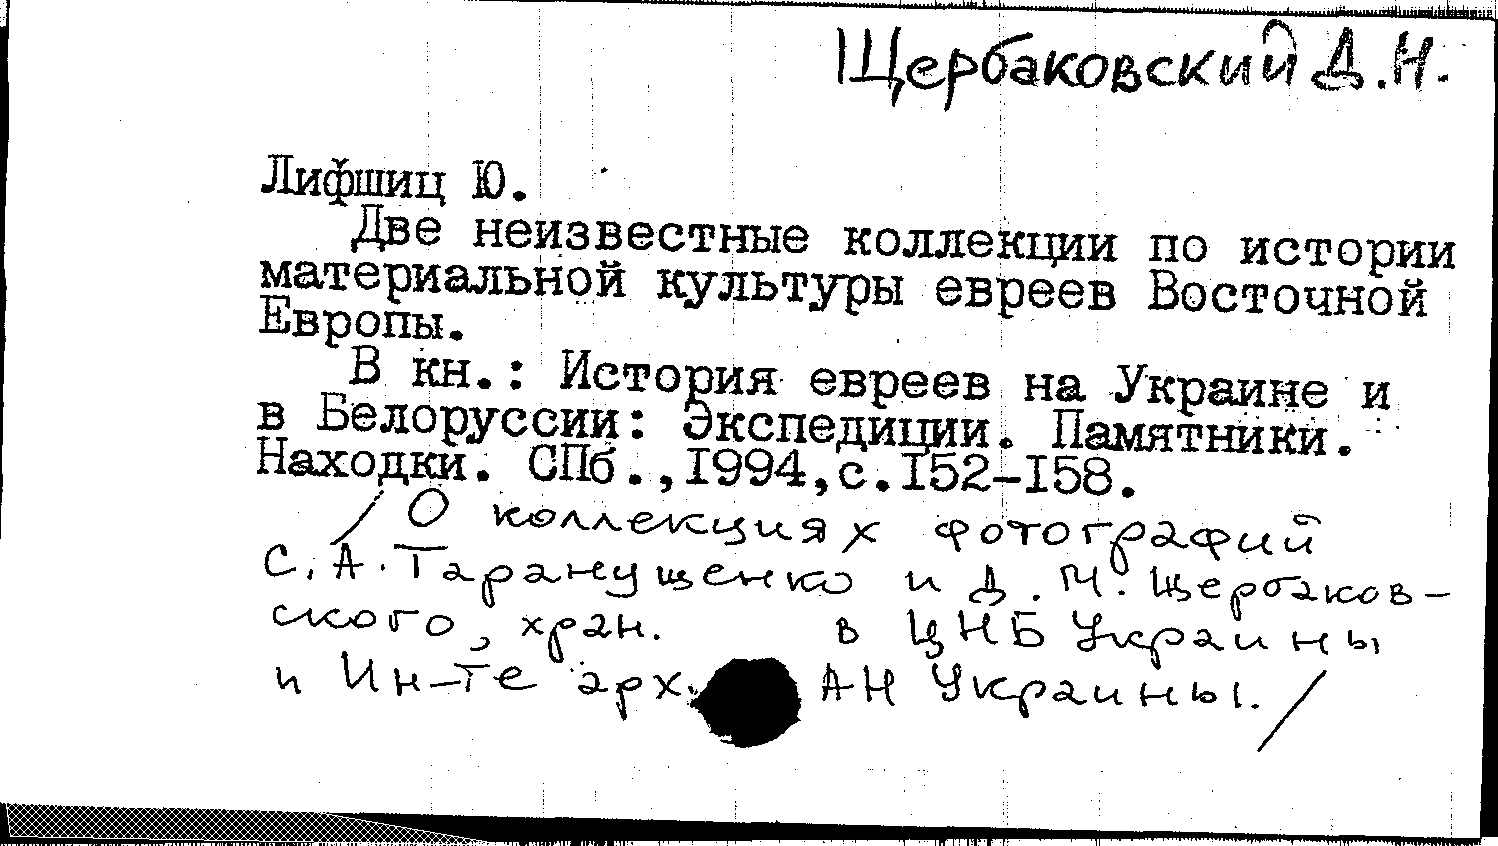 Щербаковский Д.Н.
Лифшиц Ю.
Две неизвестные коллекции по истории
материальной культуры евреев Восточной
Европы.
В кн.: История евреев на Украине и
в Белоруссии: Экспедиции. Памятники.
Находки. СПб.,I994,с.I52-I58.
/О коллекциях фотографий
С.А.Таранущенко и Д.М.Щербаков-
ского, хран. в ЦНБ Украины
и Ин-те арх. АН Украины./